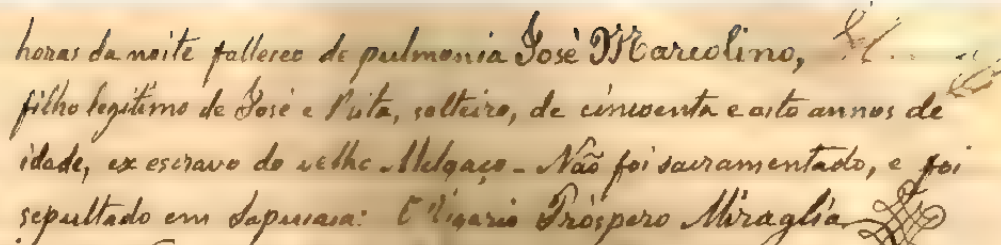 horas da noite falleceo de pulmonia José Marcolino,
filho legitimo de José e Rita, solteiro, de cincoenta e oito annos de
idade, ex escravo do velho Melgaço - Não foi sacramentado, e foi
sepultado em Sapucaia: O Vigario Próspero Miraglia